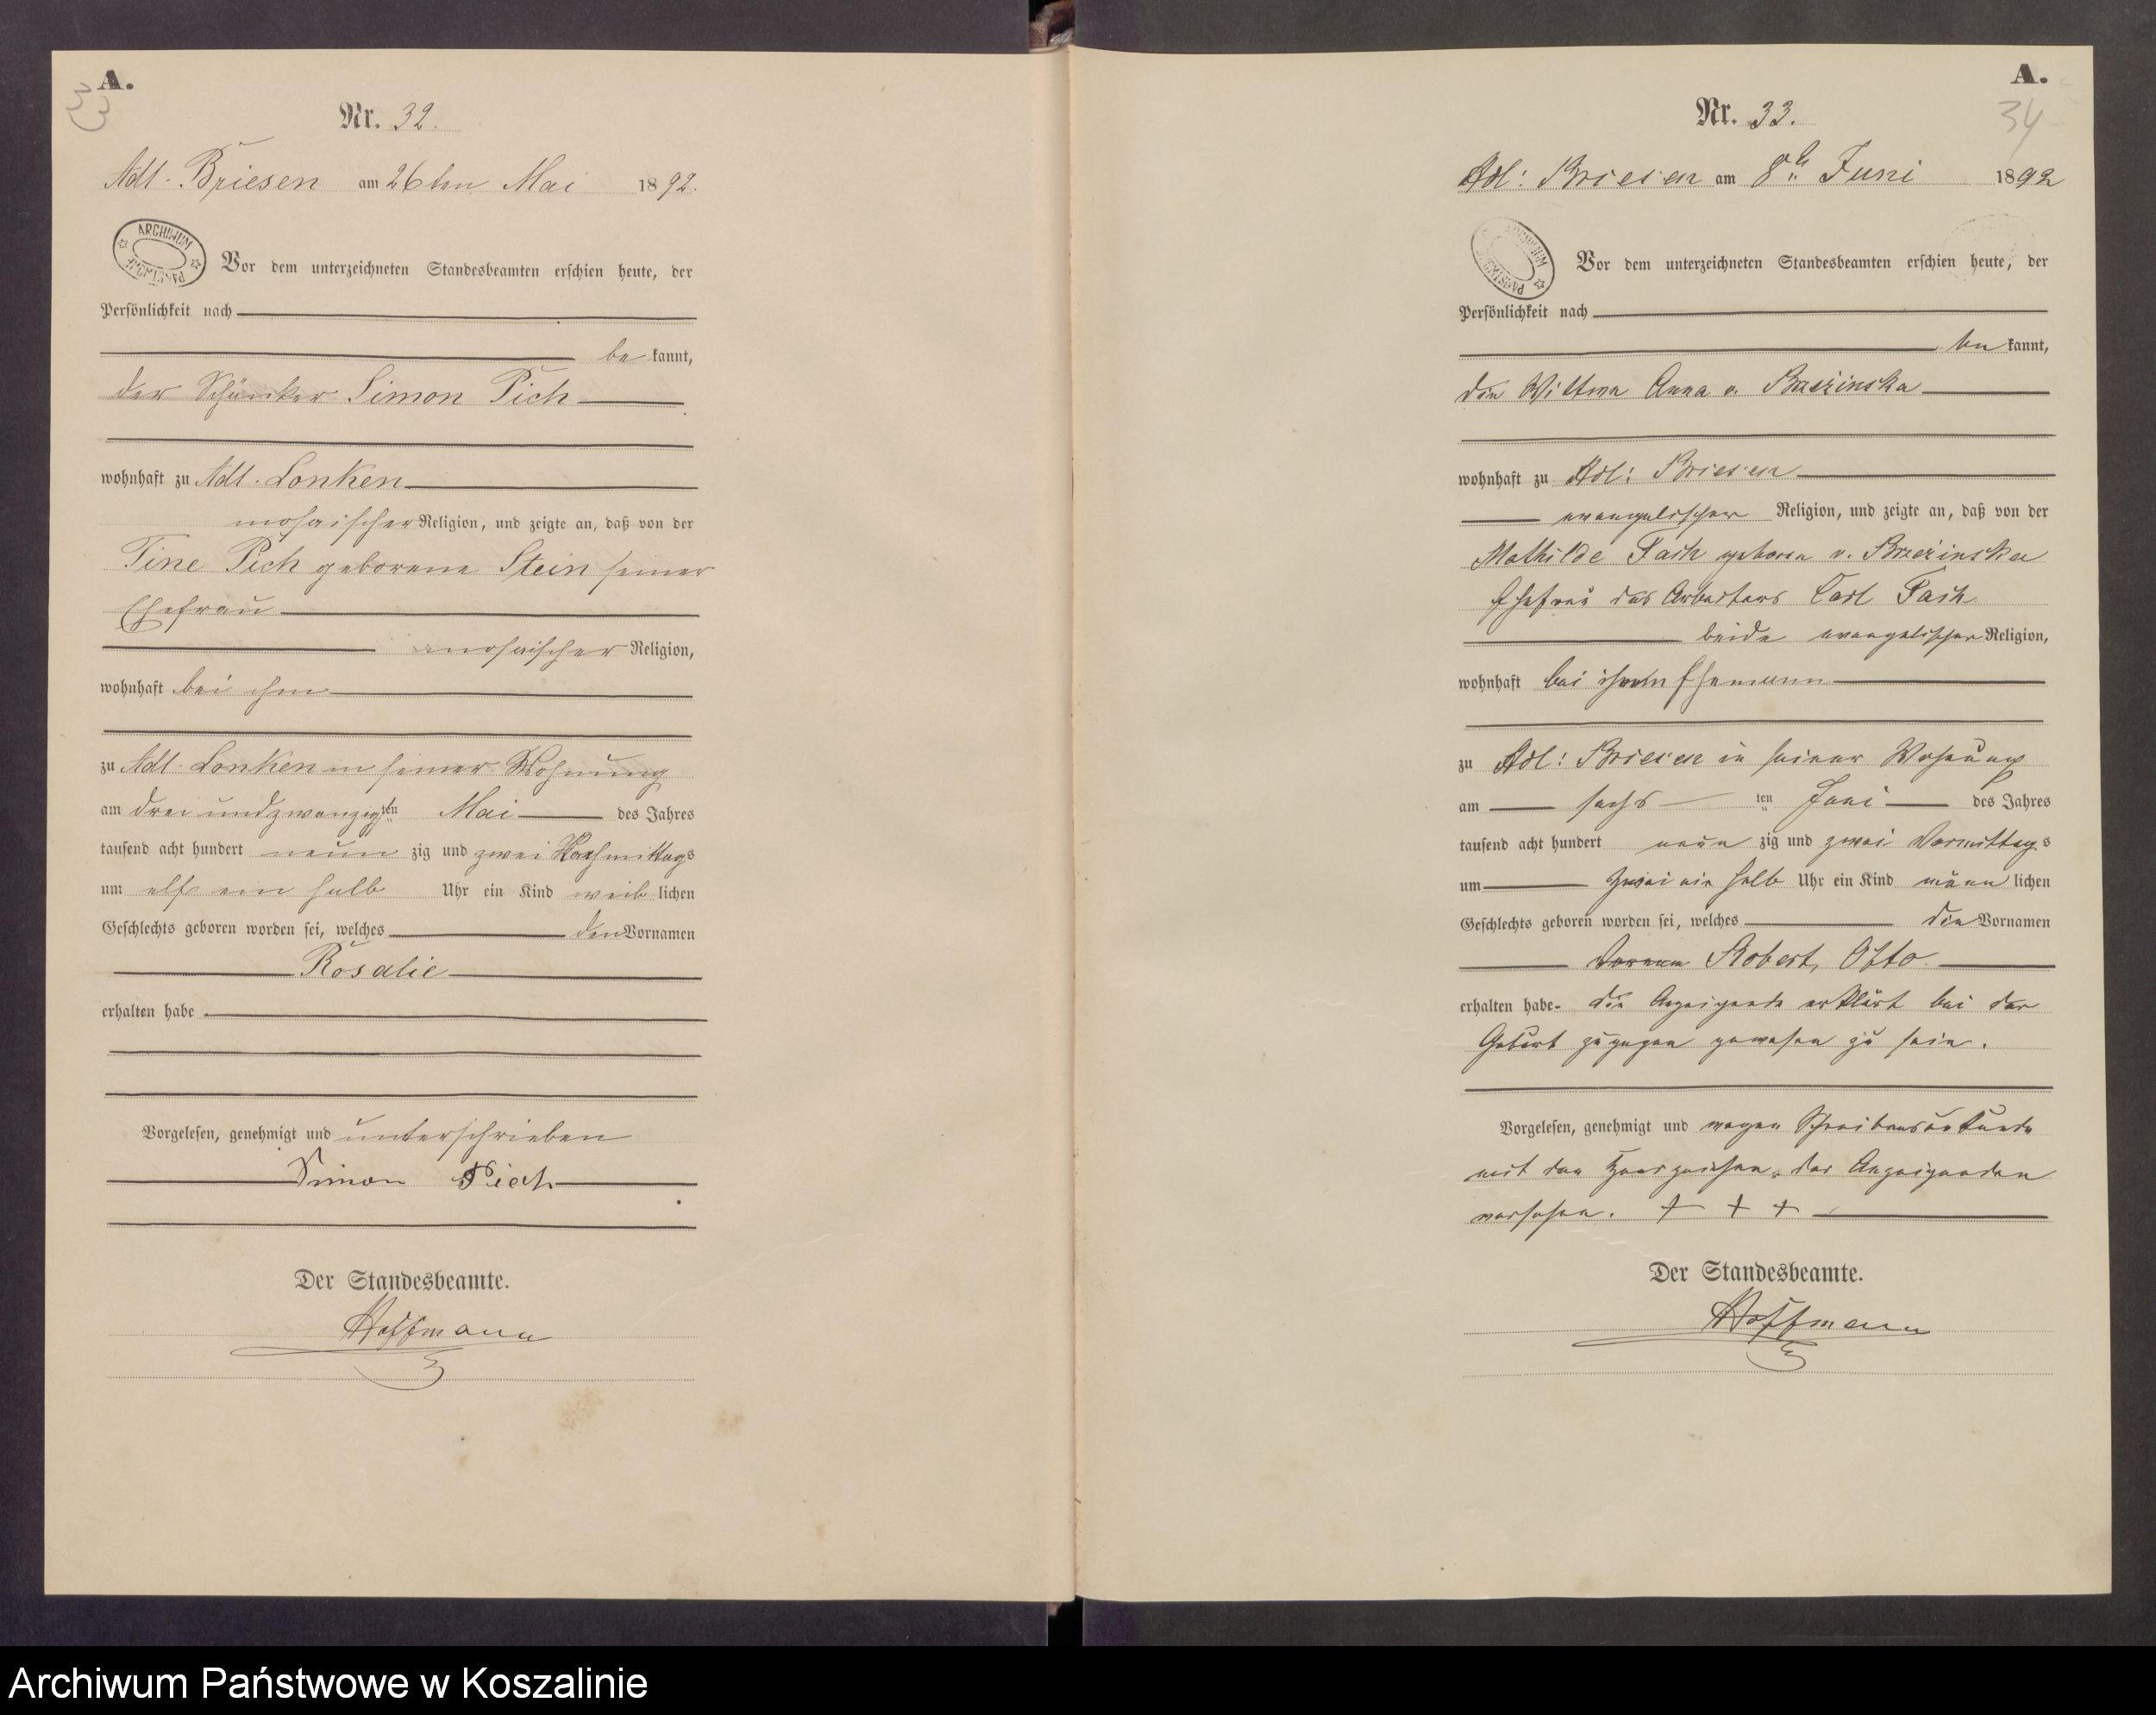 A.
33
Nr. 32.
Adl. Briesen am 26ten Mai 1892.
ARCHIWUM PAŃSTWOWE
Vor dem unterzeichneten Standesbeamten erschien heute, der
Persönlichkeit nach
be kannt,
der Schänker Simon Pich
wohnhaft zu Adl. Lonken
mosaischer Religion, und zeigte an, daß von der
Tine Pich geborene Stein seiner
Ehefrau
mosaischer Religion,
wohnhaft bei ihm
zu Adl. Lonken in seiner Wohnung
am drei und zwanzigsten Mai des Jahres
tausend acht hundert neun zig und zwei Nachmittags
um elf ein halb Uhr ein Kind weib lichen
Geschlechts geboren worden sei, welches den Vornamen
Rosalie
erhalten habe
Vorgelesen, genehmigt und unterschrieben
Simon Pich
Der Standesbeamte.
Hoffmann
A.
34
Nr. 33.
Adl: Briesen am 8t Juni 1892
ARCHIWUM PAŃSTWOWE
Vor dem unterzeichneten Standesbeamten erschien heute, der
Persönlichkeit nach
be kannt,
die Wittwe Anna v. Brzezinska
wohnhaft zu Adl: Briesen
evangelischer Religion, und zeigte an, daß von der
Mathilde geboren v. Brzezinska
Ehefrau des Arbeiters Carl
beide evangelischer Religion,
wohnhaft bei ihrem Ehemann
zu Adl: Briesen in seiner Wohnung
am sechs ten Juni des Jahres
tausend acht hundert neun zig und zwei Vormittags
um zwei ein halb Uhr ein Kind männ lichen
Geschlechts geboren worden sei, welches die Vornamen
Robert, Otto.
erhalten habe. die Anzeigende erklärt bei der
Geburt zugegen gewesen zu sein.
Vorgelesen, genehmigt und wegen Schreibensunkunde
mit den Handzeichen der Anzeigenden
versehen. + + +
Der Standesbeamte.
Hoffmann
Archiwum Państwowe w Koszalinie